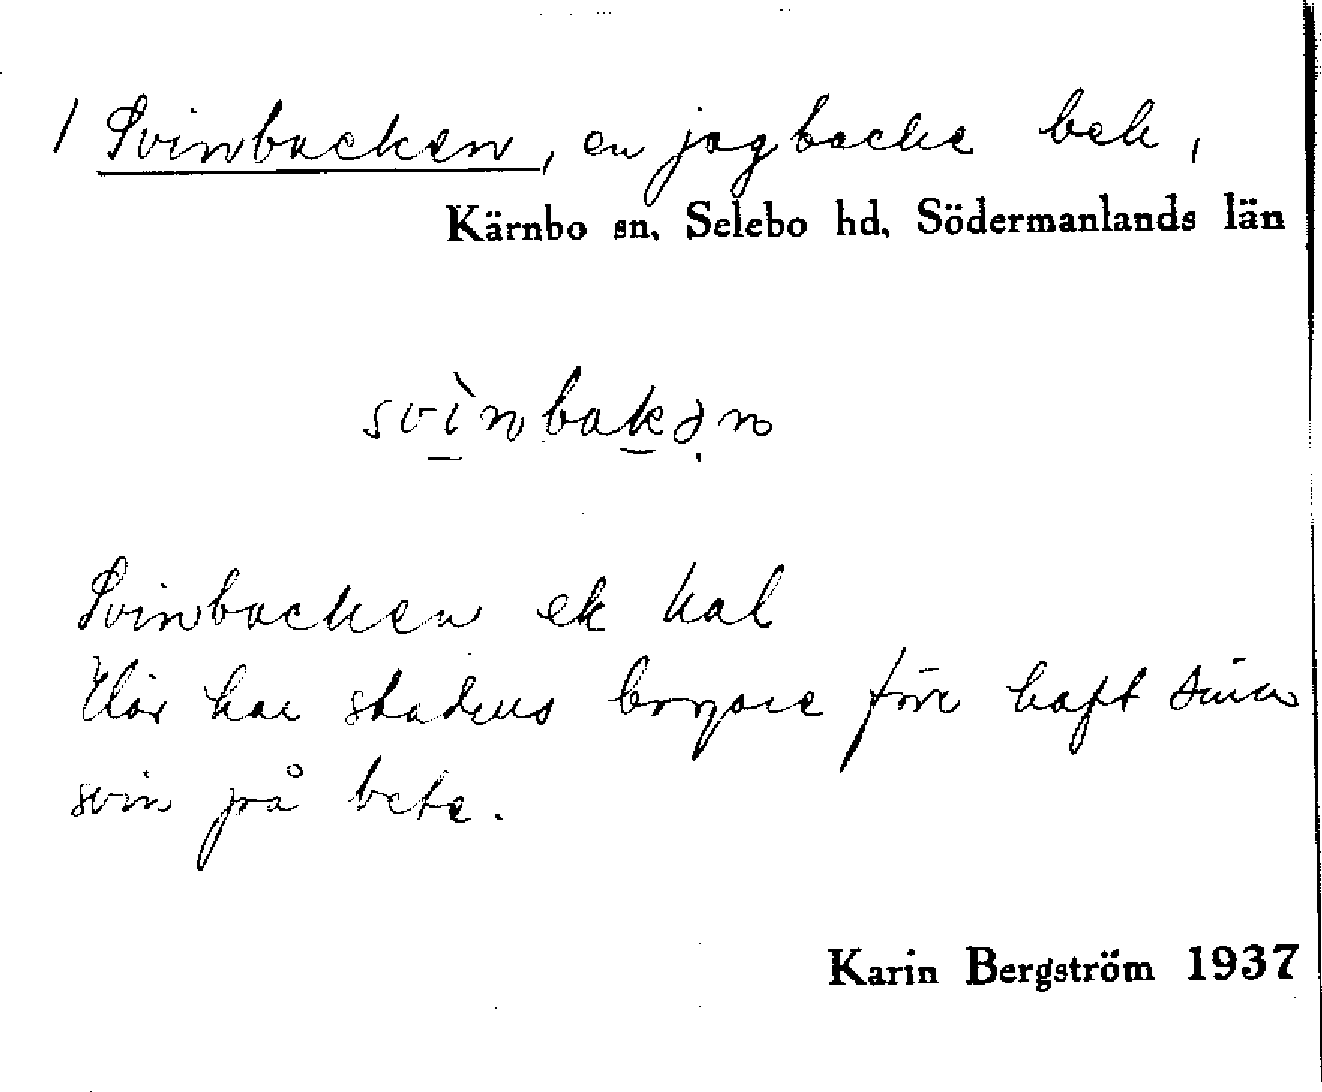 1 Svinbacken, en jag backe bek,
Kärnbo sn. Selebo hd. Södermanlands län
svìnbakən
Svinbacken ek kal
Här har stadens borgare förr haft sina
svin på bete.
Karin Bergström 1937